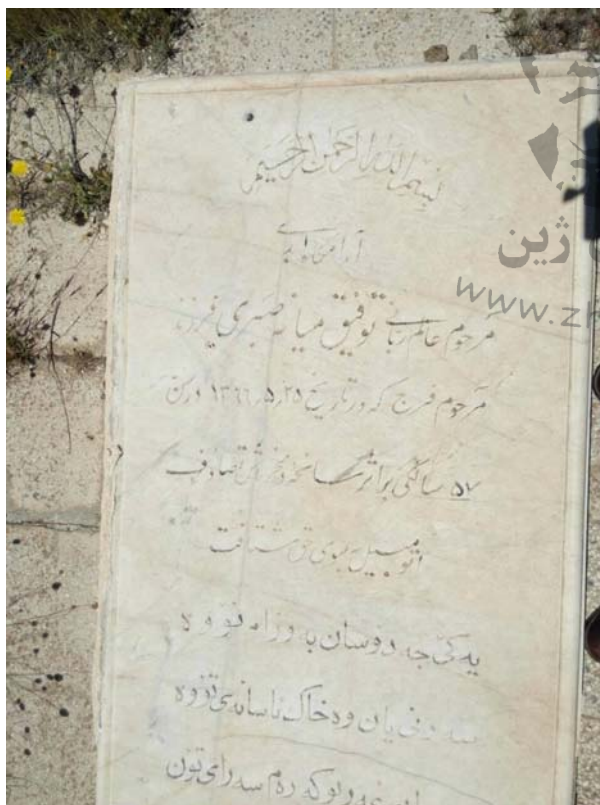 بسم الله الرحمن الرحیم
آرامگاه ابدی
مرحوم عالم ربانی توفیق میانه صبری فرزند
مرحوم فرج که در تاریخ ۲۵ر۵ر۱۳۶۶ در سن
۵۷ سالگی بر اثر سانحه دلخراش تصادف
اتومبیل بسوی حق شتافت
یه کی جه دوسان به وزاه نووه
وه خاک ناسانهی تووه
که رهم سه رای تون
ژین
www.zh